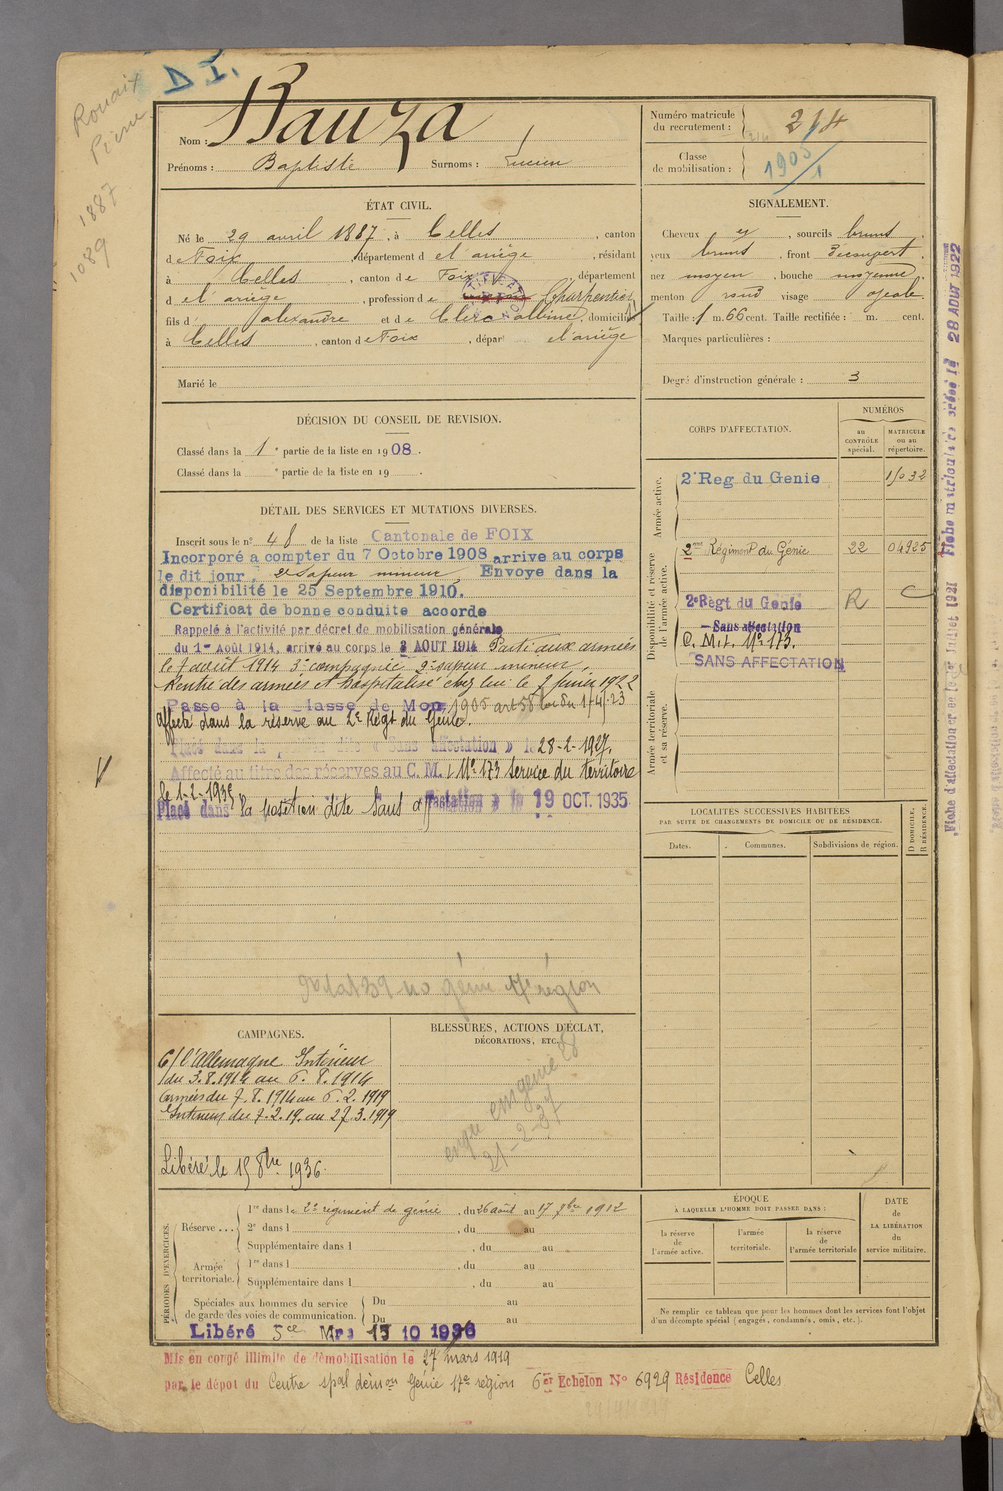 Rouaix
Pierre
1887
1089
D I.
Nom : Bauza
Prénoms : Baptiste Surnoms : Lucien
Numéro matricule
du recrutement : 214
Classe
de mobilisation : 1905/1
ÉTAT CIVIL.
Né le 29 avril 1887, à Celles, canton
d e Foix, département d e l'ariège, résidant
à Celles, canton d e Foix, département
d e l'ariège, profession d e Charpentier
fils d' alexandre et d e Clerc albine, domiciliés
à Celles, canton d e Foix, départ' e l'ariège
Marié le
SIGNALEMENT.
Cheveux et, sourcils bruns.
yeux bruns, front Découvert.
nez moyen, bouche moyenne,
menton rond visage ovale.
Taille : 1 m. 66 cent. Taille rectifiée : m. cent.
Marques particulières :
Degré d'instruction générale : 3
DÉCISION DU CONSEIL DE REVISION.
Classé dans la 1e partie de la liste en 1908.
Classé dans la e partie de la liste en 19 .
DÉTAIL DES SERVICES ET MUTATIONS DIVERSES.
Inscrit sous le n° 48 de la liste Cantonale de FOIX
Incorporé a compter du 7 Octobre 1908 arrive au corps
le dit jour, 2e Sapeur mineur, Envoye dans la
disponibilité le 25 Septembre 1910.
Certificat de bonne conduite accorde
Rappelé à l'activité par décret de mobilisation générale
du 1er Août 1914, arrivé au corps le 3 AOUT 1914 Parti aux armées
le 7 août 1914 3e compagnie 2e sapeur mineur.
Rentré des armées et hospitalisé chez lui le 2 juin 1922
Passe à la classe de Mob 1905 art 58 loi du 1-4-23
affecté dans la réserve au 2e Régt du Génie.
Placé dans la position dite « Sans affectation » le 28-2-1927.
Affecté au titre des réserves au C. M. I. N° 173 Service du territoire
le 1-2-1935
Placé dans la position dite Sans affectation » le 19 OCT. 1935
génie 17e région
CORPS D'AFFECTATION.
NUMÉROS
au
CONTRÔLE
spécial.
MATRICULE
ou au
répertoire.
Armée active.
2e Reg du Genie 1/032
Disponibilité et réserve
de l'armée active.
2ème Régiment du Génie 22 04925
2e Regt du Genie R C
Sans affectation
C. M.I. N° 173.
SANS AFFECTATION
Armée territoriale
et sa réserve.
LOCALITÉS SUCCESSIVES HABITÉES
PAR SUITE DE CHANGEMENTS DE DOMICILE OU DE RÉSIDENCE.
Dates. Communes. Subdivisions de région. D DOMICILE. R RÉSIDENCE.
CAMPAGNES.
C/ l'Allemagne Intérieur
du 3.8.1914 au 6.8.1914
Armées du 7.8.1914 au 6.2.1919
Intérieur du 7.2.19 au 27.3.1919
Libéré le 15 8bre 1936.
BLESSURES, ACTIONS D'ÉCLAT,
DÉCORATIONS, ETC.
génie 28
21-2-27
PÉRIODES D'EXERCICES.
Réserve ...
1re dans le 2e régiment de génie, du 26 août au 17 7bre 1912
2e dans l , du au
Supplémentaire dans l , du au
Armée
territoriale.
1re dans l , du au
Supplémentaire dans l , du au
Spéciales aux hommes du service
de garde des voies de communication.
Du au
Du au
Libéré Sce Mre 15 10 1936
ÉPOQUE
À LAQUELLE L'HOMME DOIT PASSER DANS :
la réserve
de
l'armée active.
l'armée
territoriale.
la réserve
de
l'armée territoriale
DATE
de
LA LIBÉRATION
du
service militaire.
Ne remplir ce tableau que pour les hommes dont les services font l'objet
d'un décompte spécial (engagés, condamnés, omis, etc.).
Mis en congé illimité de démobilisation le 27 mars 1919
par le dépot du Centre spal démon Génie 17e région 6er Echelon N° 6929 Résidence Celles
Fiche d'affectation créée le 1er Juillet 1921 Fiche matriculaire créée le 28 AOUT 1922